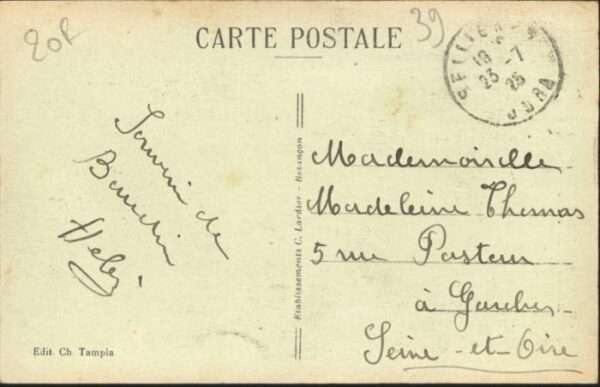 20F
CARTE POSTALE
39
SELLIÈRES
18
25 -7
25
JURA
Souvenir de
Baudin
Mademoiselle
Madeleine Thomas
5 rue Pasteur
à Garches
Seine-et-Oise
Etablissements C. Lardier - Besançon
Edit. Ch. Tampia